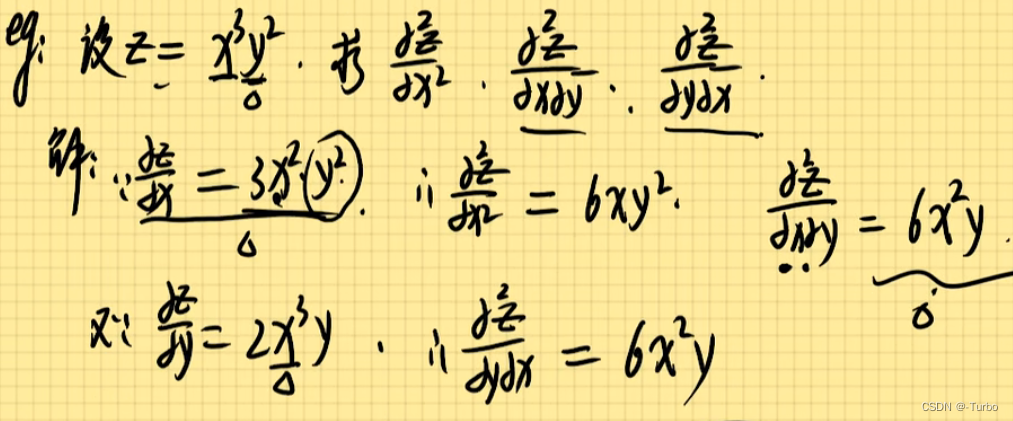 eg: 设 z = x³y². 求 ∂²z/∂x², ∂²z/∂x∂y, ∂²z/∂y∂x.
解: ∵ ∂z/∂x = 3x²(y²). ∴ ∂²z/∂x² = 6xy². ∂²z/∂x∂y = 6x²y.
又∵ ∂z/∂y = 2x³y. ∴ ∂²z/∂y∂x = 6x²y
CSDN @-Turbo